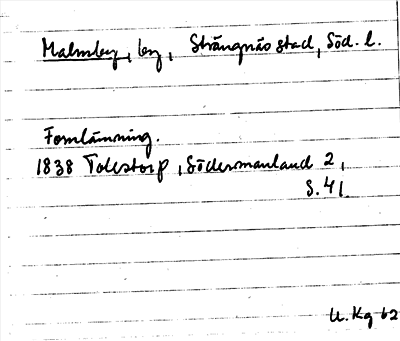 Malmby, by, Strängnäs stad, Söd. l.
Fornlämning.
1838 Tolestorp, Södermanland 2,
S. 41
U. Kg 62